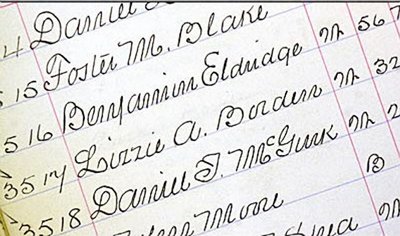 4 Daniel
15 Foster M. Blake
516 Benjamin Eldridge M 56
3517 Lizzie A. Borden M 32
3518 Daniel T. McGurk M 2
Moore B
M